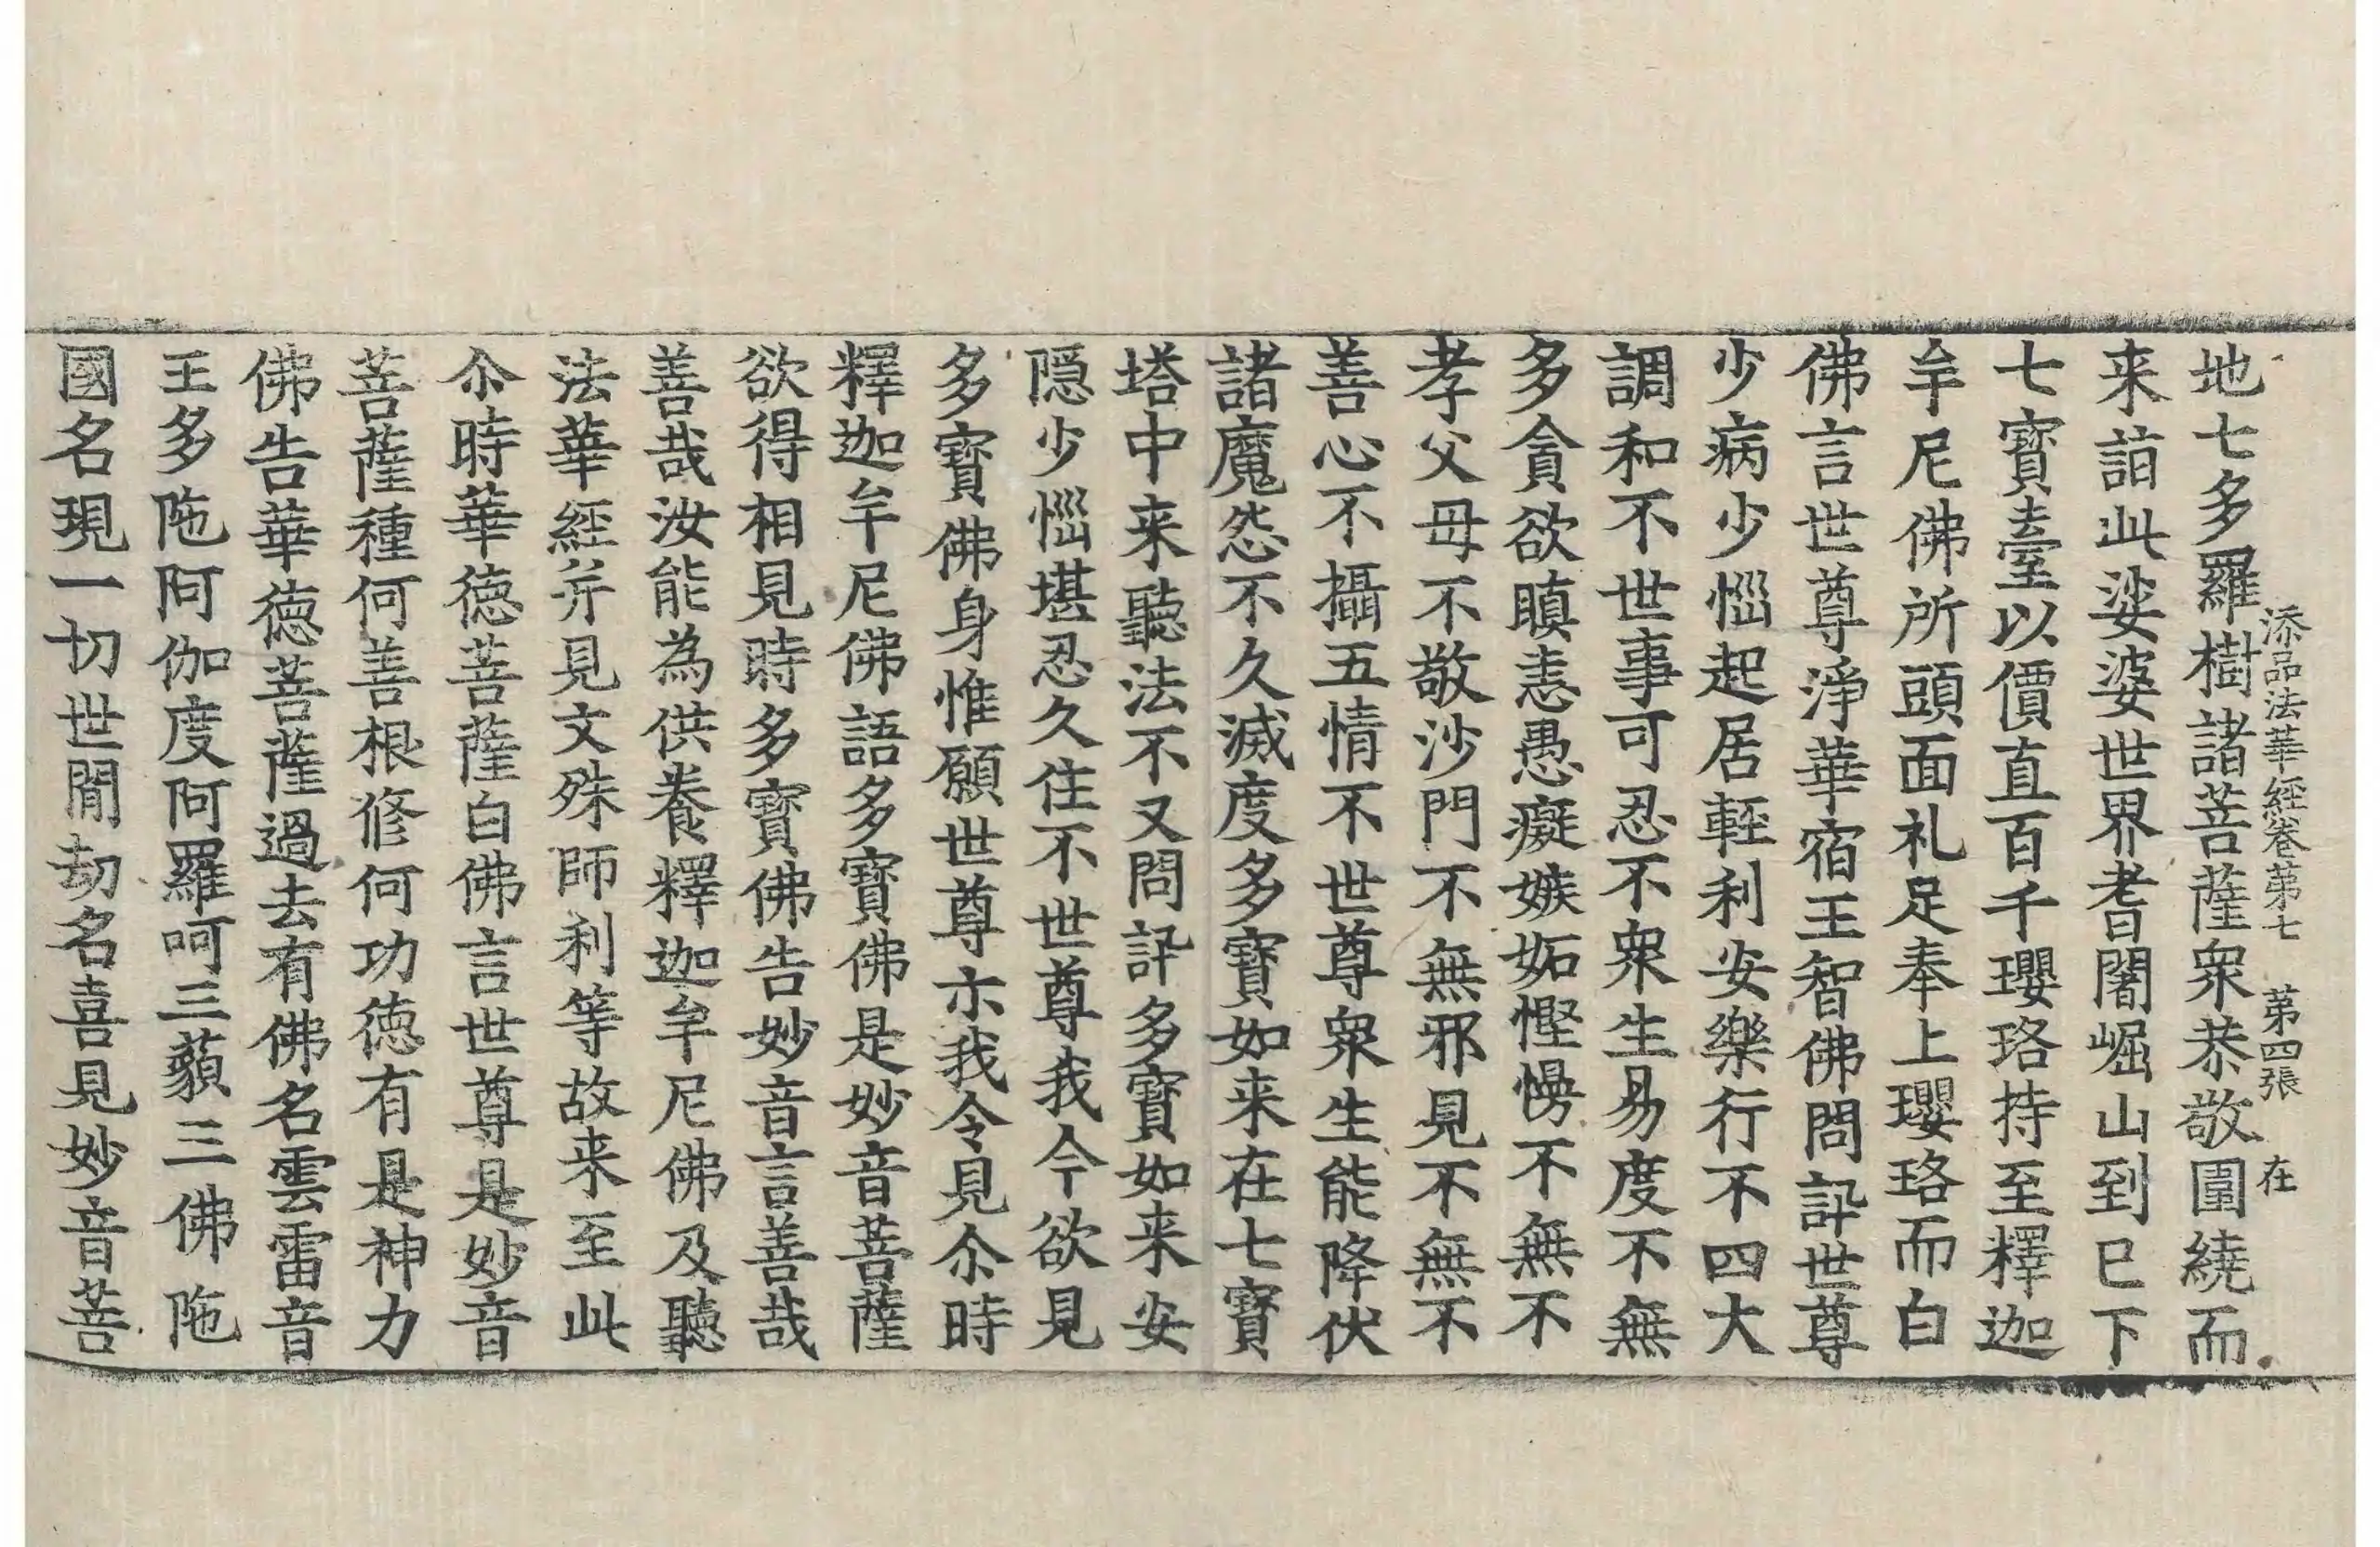 添品法華經卷第七　第四張　在
地七多羅樹諸菩薩衆恭敬圍繞而
来詣此娑婆世界耆闍崛山到已下
七寶臺以價直百千瓔珞持至釋迦
牟尼佛所頭面礼足奉上瓔珞而白
佛言世尊淨華宿王智佛問訊世尊
少病少惱起居輕利安樂行不四大
調和不世事可忍不衆生易度不無
多貪欲瞋恚愚癡嫉妬慳慢不無不
孝父母不敬沙門不無邪見不無不
善心不攝五情不世尊衆生能降伏
諸魔怨不久滅度多寶如来在七寶
塔中来聽法不又問訊多寶如来安
隱少惱堪忍久住不世尊我今欲見
多寶佛身惟願世尊示我令見尒時
釋迦牟尼佛語多寶佛是妙音菩薩
欲得相見時多寶佛告妙音言善哉
善哉汝能為供養釋迦牟尼佛及聽
法華經并見文殊師利等故来至此
尒時華徳菩薩白佛言世尊是妙音
菩薩種何善根修何功徳有是神力
佛告華徳菩薩過去有佛名雲雷音
王多陁阿伽度阿羅呵三藐三佛陁
國名現一切世閒劫名喜見妙音菩